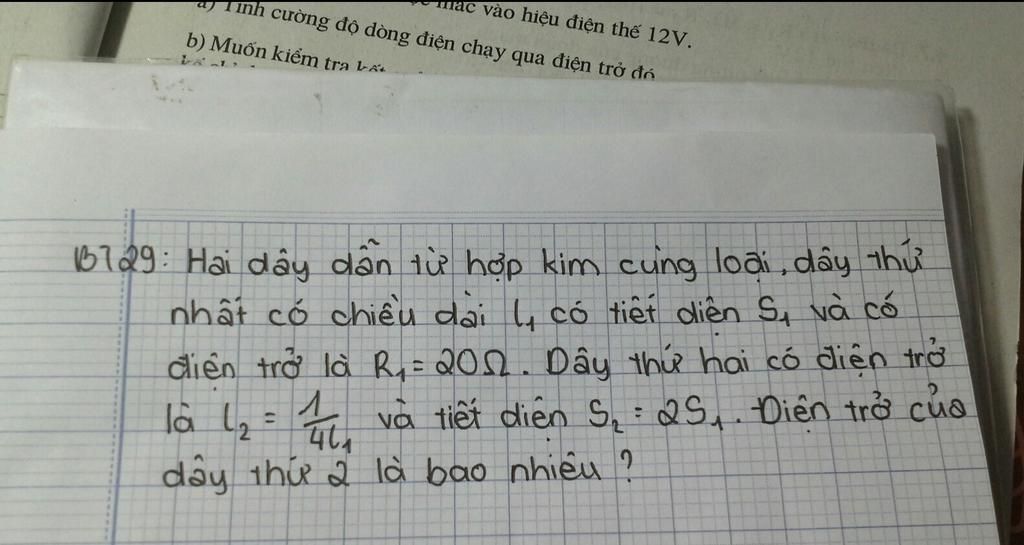 mắc vào hiệu điện thế 12V.
a) Tính cường độ dòng điện chạy qua điện trở đó
b) Muốn kiểm tra kết
BT29: Hai dây dẫn từ hợp kim cùng loại, dây thứ
nhất có chiều dài l₁ có tiết diện S₁ và có
điện trở là R₁ = 20Ω. Dây thứ hai có điện trở
là l₂ = 1/4l₁ và tiết diện S₂ = 2S₁. Điện trở của
dây thứ 2 là bao nhiêu?